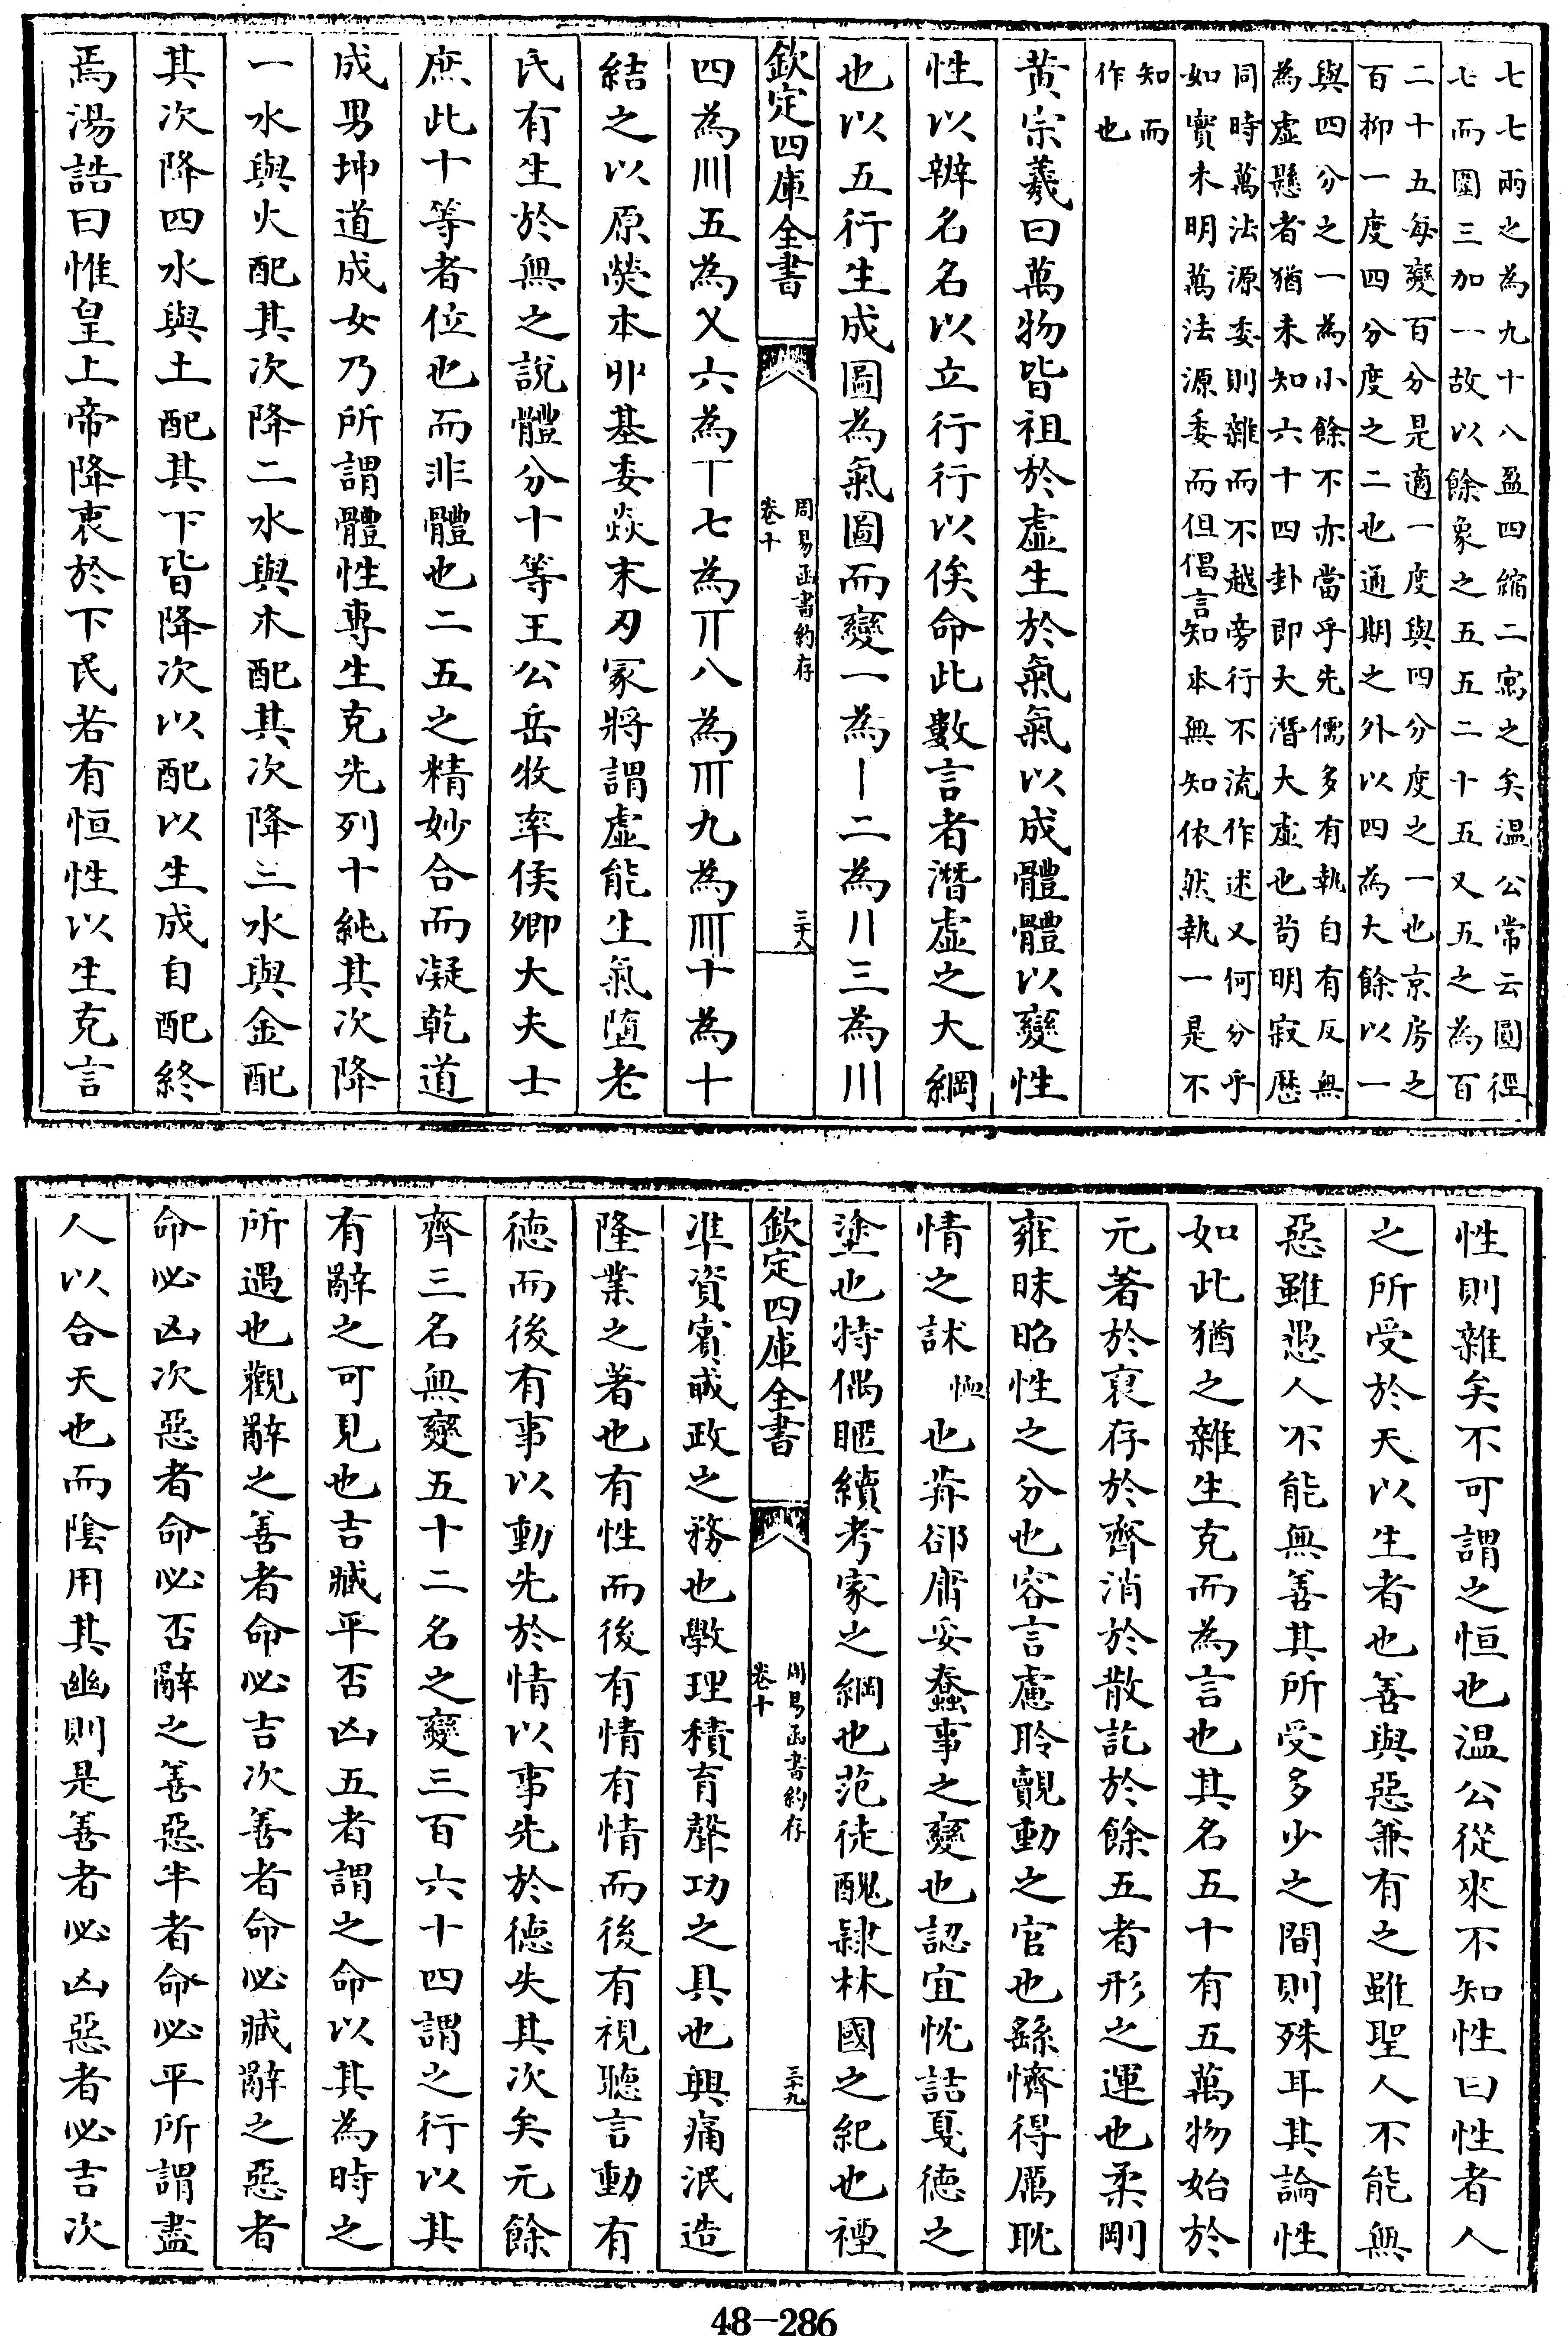 七七兩之為九十八盈四縮二寓之矣溫公常云圓徑
七而圍三加一故以餘象之五五二十五又五之為百
二十五每變百分是適一度與四分度之一也京房之
百抑一度四分度之二也通期之外以四為大餘以一
與四分之一為小餘不亦當乎先儒多有執自有反無
為虛懸者猶未知六十四卦即大潛大虛也茍明寂歷
同時萬法源委則雜而不越旁行不流作述又何分乎
如實未明萬法源委而但倡言知本無知依然執一是不
知而
作也
黃宗羲曰萬物皆祖於虛生於氣氣以成體體以變性
性以辨名名以立行行以俟命此數言者潛虛之大綱
也以五行生成圖為氣圖而變一為〡二為〢三為〣
欽定四庫全書
周易函書約存
卷十
三十八
四為〣〡五為㐅六為丅七為〧八為〨九為〩十為十
結之以原熒本丱基委焱末刃冢將謂虛能生氣墮老
氏有生於無之說體分十等王公岳牧率侯卿大夫士
庶此十等者位也而非體也二五之精妙合而凝乾道
成男坤道成女乃所謂體性專生克先列十純其次降
一水與火配其次降二水與木配其次降三水與金配
其次降四水與土配其下皆降次以配以生成自配終
焉湯誥曰惟皇上帝降衷於下民若有恒性以生克言
性則雜矣不可謂之恒也溫公從來不知性曰性者人
之所受於天以生者也善與惡兼有之雖聖人不能無
惡雖愚人不能無善其所受多少之間則殊耳其論性
如此猶之雜生克而為言也其名五十有五萬物始於
元著於裒存於齊消於散訖於餘五者形之運也柔剛
雍昧昭性之分也容言慮聆觀動之官也繇懠得罹耽
情之訹
恤
也歬郤庸妥蠢事之變也認宜忱詰戛德之
塗也特偶暱續考家之綱也范徒醜隸林國之紀也禋
欽定四庫全書
周易函書約存
卷十
三十九
準資賓戚政之務也斆理積育聲功之具也興痛泯造
隆業之著也有性而後有情有情而後有視聽言動有
德而後有事以動先於情以事先於德失其次矣元餘
齊三名無變五十二名之變三百六十四謂之行以其
有辭之可見也吉臧平否凶五者謂之命以其為時之
所遇也觀辭之善者命必吉次善者命必臧辭之惡者
命必凶次惡者命必否辭之善惡半者命必平所謂盡
人以合天也而陰用其幽則是善者必凶惡者必吉次
48-286